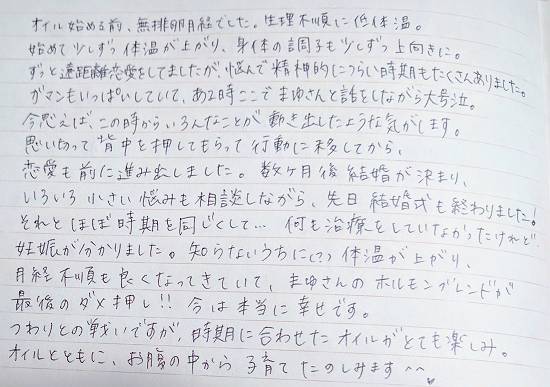 オイル始める前、無排卵月経でした。生理不順に低体温。
始めて少しずつ体温が上がり、身体の調子も少しずつ上向きに。
ずっと遠距離恋愛をしてましたが、悩んで精神的につらい時期もたくさんありました。
ガマンもいっぱいしていて、ある時ここでまゆさんと話をしながら大号泣。
今思えば、この時からいろんなことが動き出したような気がします。
思い切って背中を押してもらって行動に移してから、
恋愛も前に進み出しました。数ヶ月後結婚が決まり、
いろいろ小さい悩みも相談しながら、先日結婚式も終わりました!
それとほぼ時期を同じくして… 何も治療をしていなかったけれど
妊娠が分かりました。知らないうちに(?)体温が上がり、
月経不順も良くなってきていて、まゆさんのホルモンブレンドが
最後のダメ押し!! 今は本当に幸せです。
つわりとの戦いですが、時期に合わせたオイルがとても楽しみ。
オイルとともに、お腹の中から子育てたのしみます^^